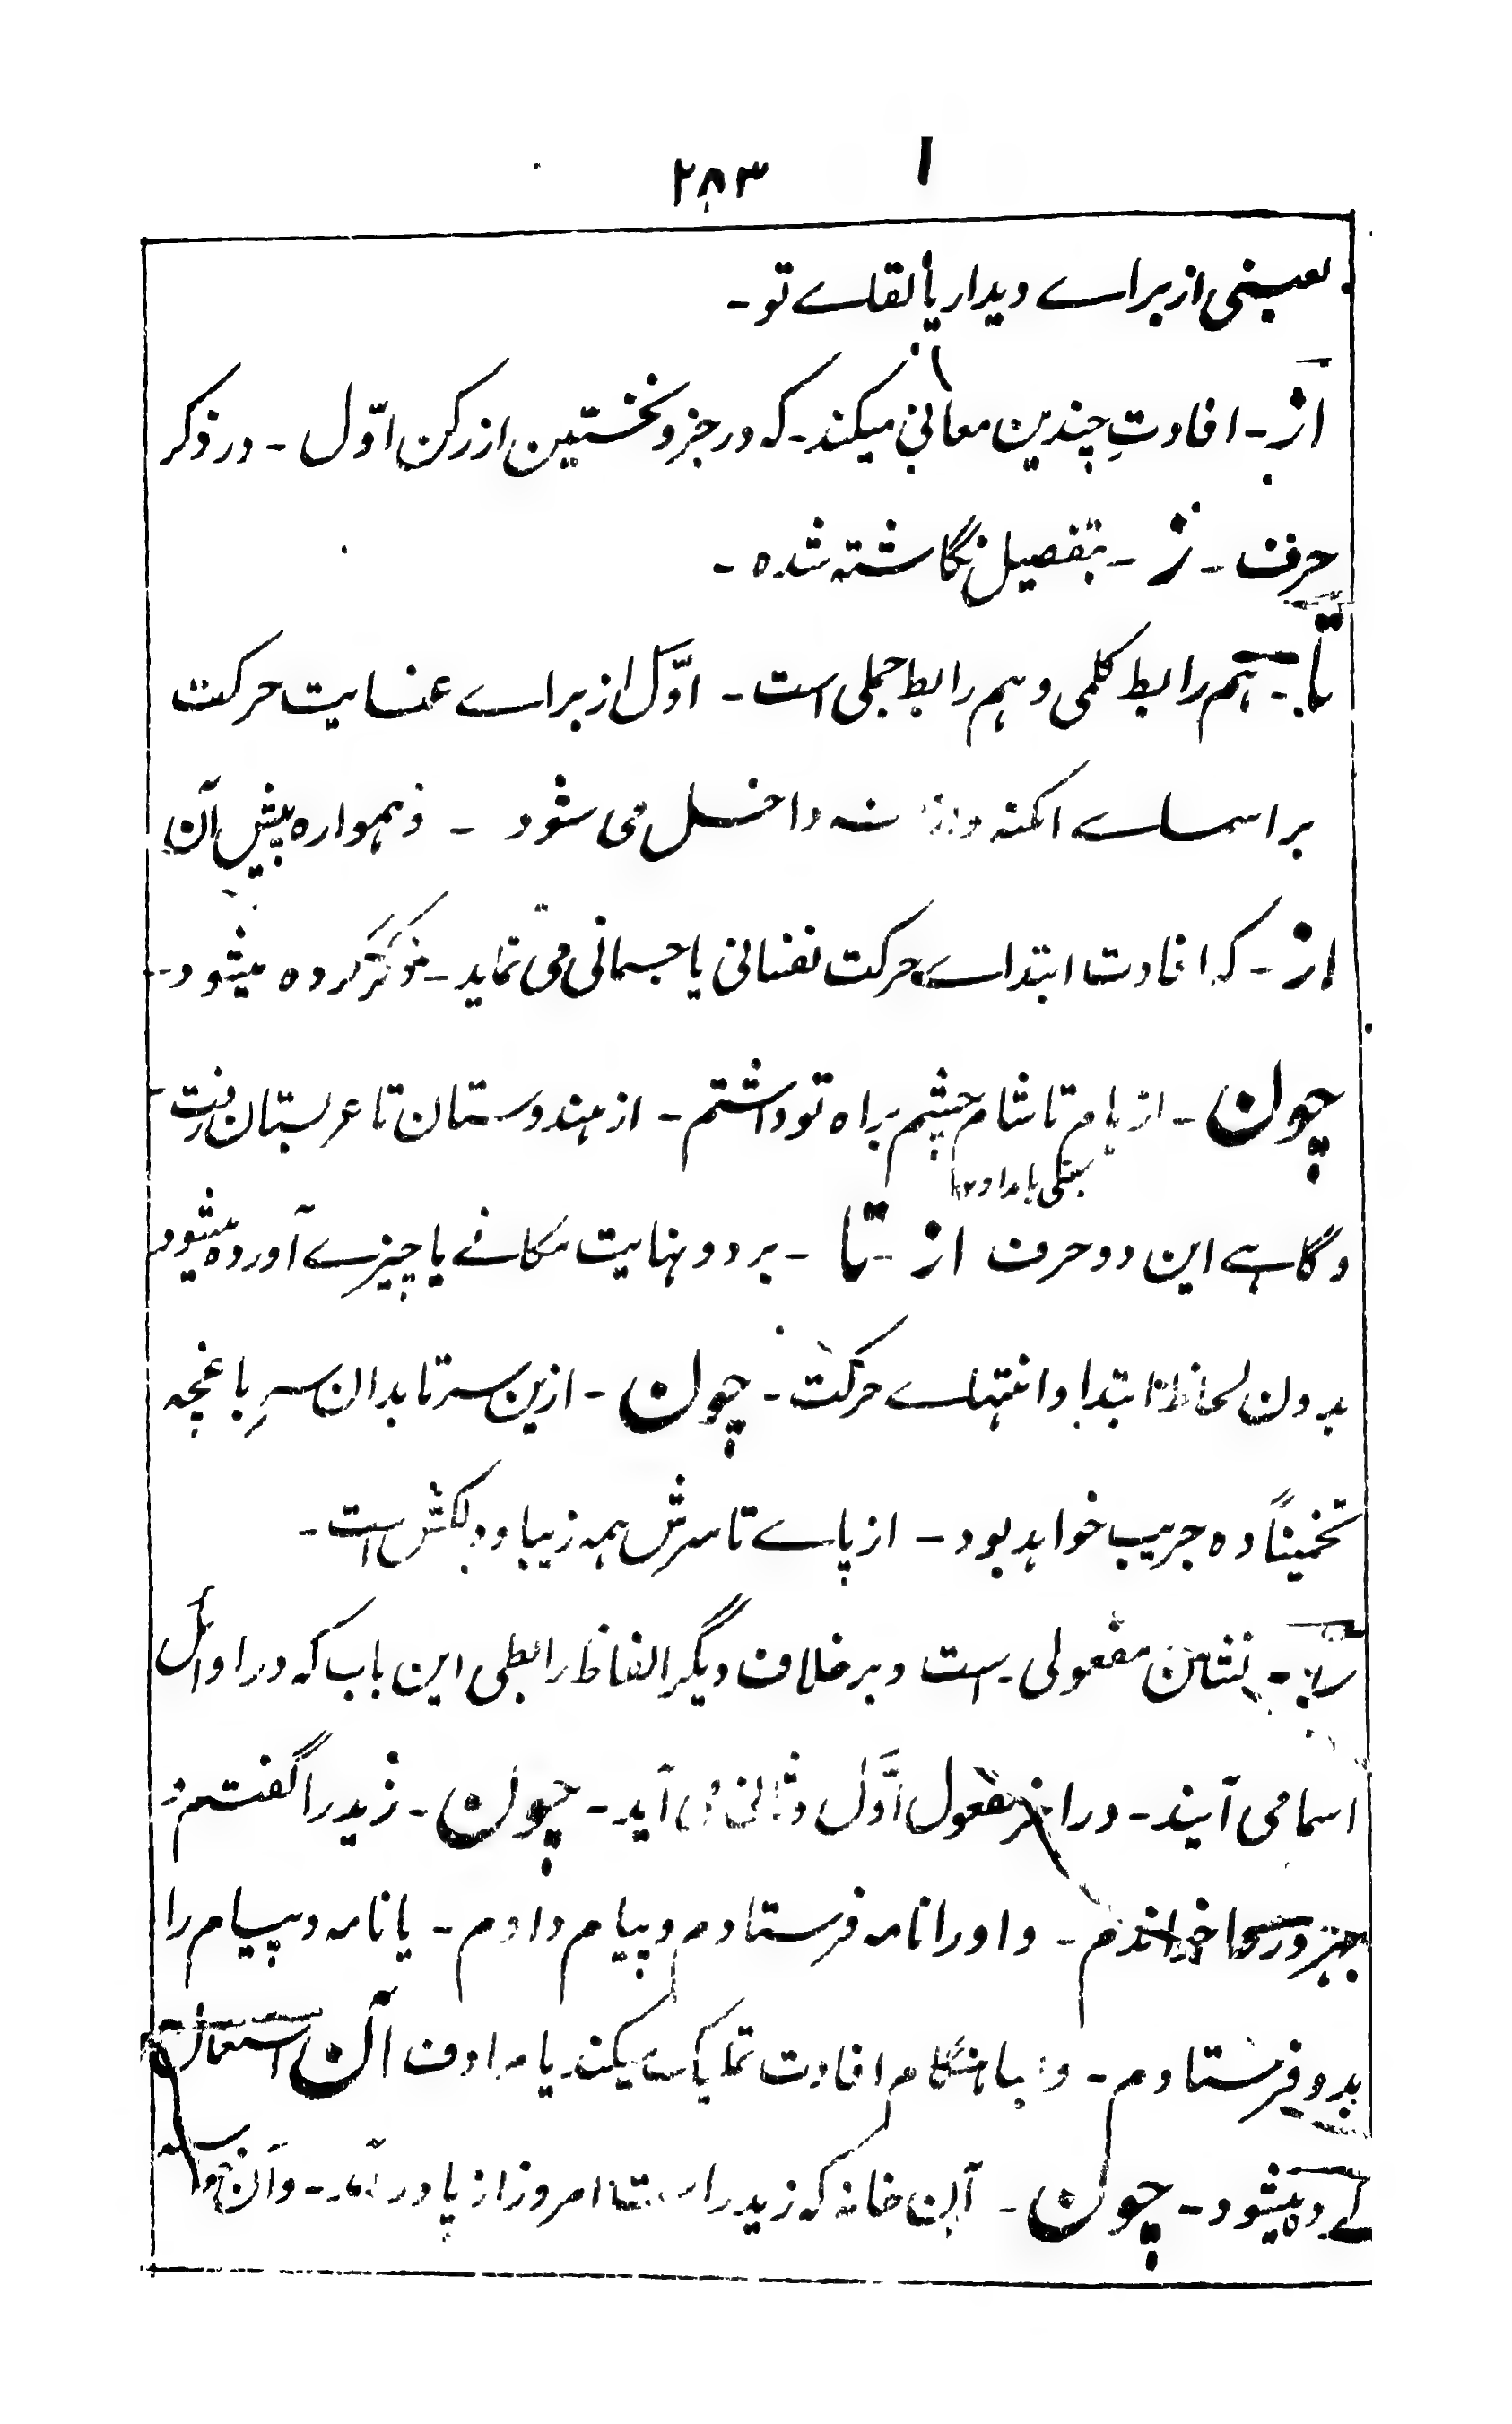 ۲۸۳ ا
یعنی از براے دیدار یا لقاے تو -
از - افادتِ چندین معانی میکند - که در جزو نخستین از رکن اوّل - در ذکر
حرف - ز - بتفصیل نگاشته شده -
تا - هم رابط کلمی و هم رابط جملی است - اوّل از براے غایت حرکت
بر اسماے امکنه و ازمنه داخل می شود - و همواره پیش آن
از - که افادت ابتداے حرکت نفسانی یا جسمانی می نماید - مذکور کرده میشود -
چون - از بام تا شام چشم براه تو داشتم - از هندوستان تا عربستان رفت -
یعنی بامداد ۱۲
و گاہے این دو حرف از - تا - بر دو نهایت مکانے یا چیزے آورده میشود
بدون لحاظ ابتدا و انتہاے حرکت - چون - ازین سر تا بدان سرِ باغچه
تخمیناً ده جریب خواهد بود - از پاے تا سرش همه زیبا و دلکش است -
را - نشان مفعولی است و بر خلاف دیگر الفاظ رابطی این باب که در اوائل
اسما می آیند - در آخر مفعول اوّل و ثانی می آید - چون - زید را گفتم و
خواندم - و او را نامه فرستادم و پیام دادم - یا نامه و پیام را
بدو فرستادم - و با هنگام افادت تملیک میکند یا مرادف آن استعمال
کرده میشود - چون - آن خانه که زید راست امروز از پا در آمد - و آن